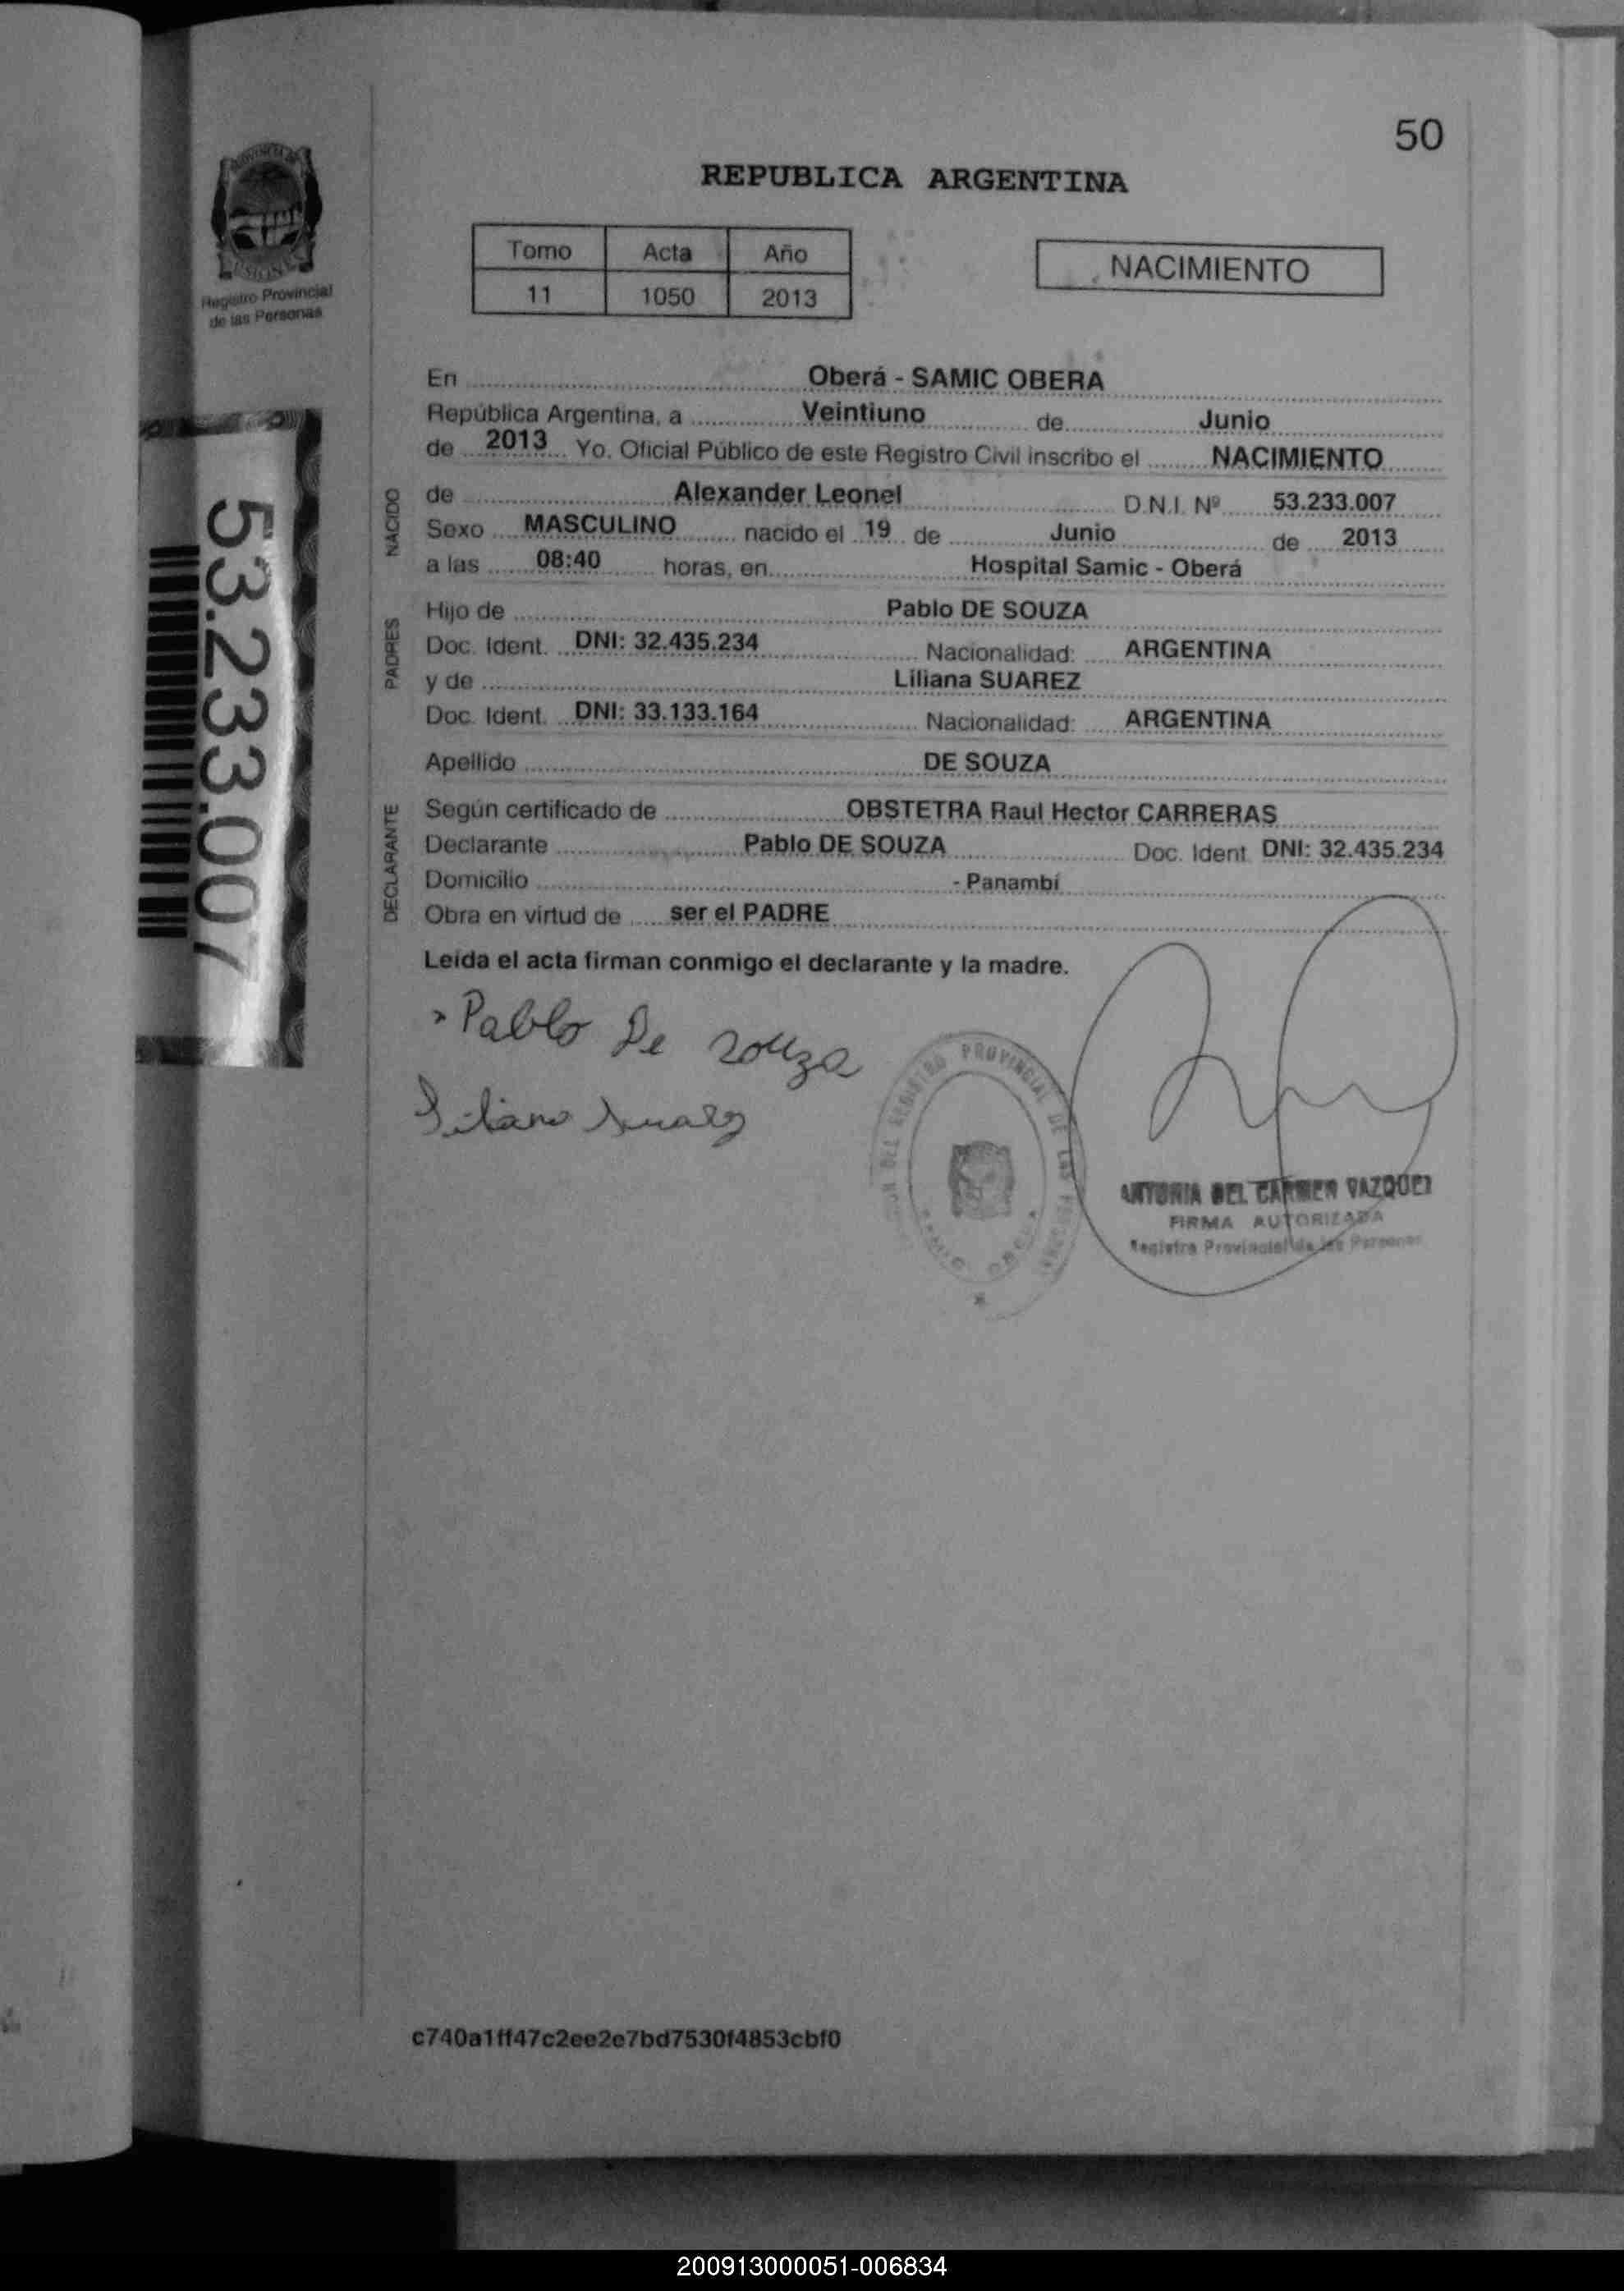 50
REPUBLICA ARGENTINA
Tomo Acta Año
11 1050 2013
NACIMIENTO
Registro Provincial
de las Personas
53.233.007
En Oberá - SAMIC OBERA
República Argentina, a Veintiuno de Junio
de 2013 Yo. Oficial Público de este Registro Civil inscribo el NACIMIENTO
NACIDO
de Alexander Leonel D.N.I. Nº 53.233.007
Sexo MASCULINO nacido el 19 de Junio de 2013
a las 08:40 horas, en Hospital Samic - Oberá
PADRES
Hijo de Pablo DE SOUZA
Doc. Ident. DNI: 32.435.234 Nacionalidad: ARGENTINA
y de Liliana SUAREZ
Doc. Ident. DNI: 33.133.164 Nacionalidad: ARGENTINA
Apellido DE SOUZA
DECLARANTE
Según certificado de OBSTETRA Raul Hector CARRERAS
Declarante Pablo DE SOUZA Doc. Ident. DNI: 32.435.234
Domicilio - Panambí
Obra en virtud de ser el PADRE
Leída el acta firman conmigo el declarante y la madre.
Pablo De Souza
Liliana Suarez
DEL REGISTRO PROVINCIAL DE LAS
ANTONIA DEL CARMEN VAZQUEZ
FIRMA AUTORIZADA
Registro Provincial de las Personas
c740a1ff47c2ee2e7bd7530f4853cbf0
200913000051-006834